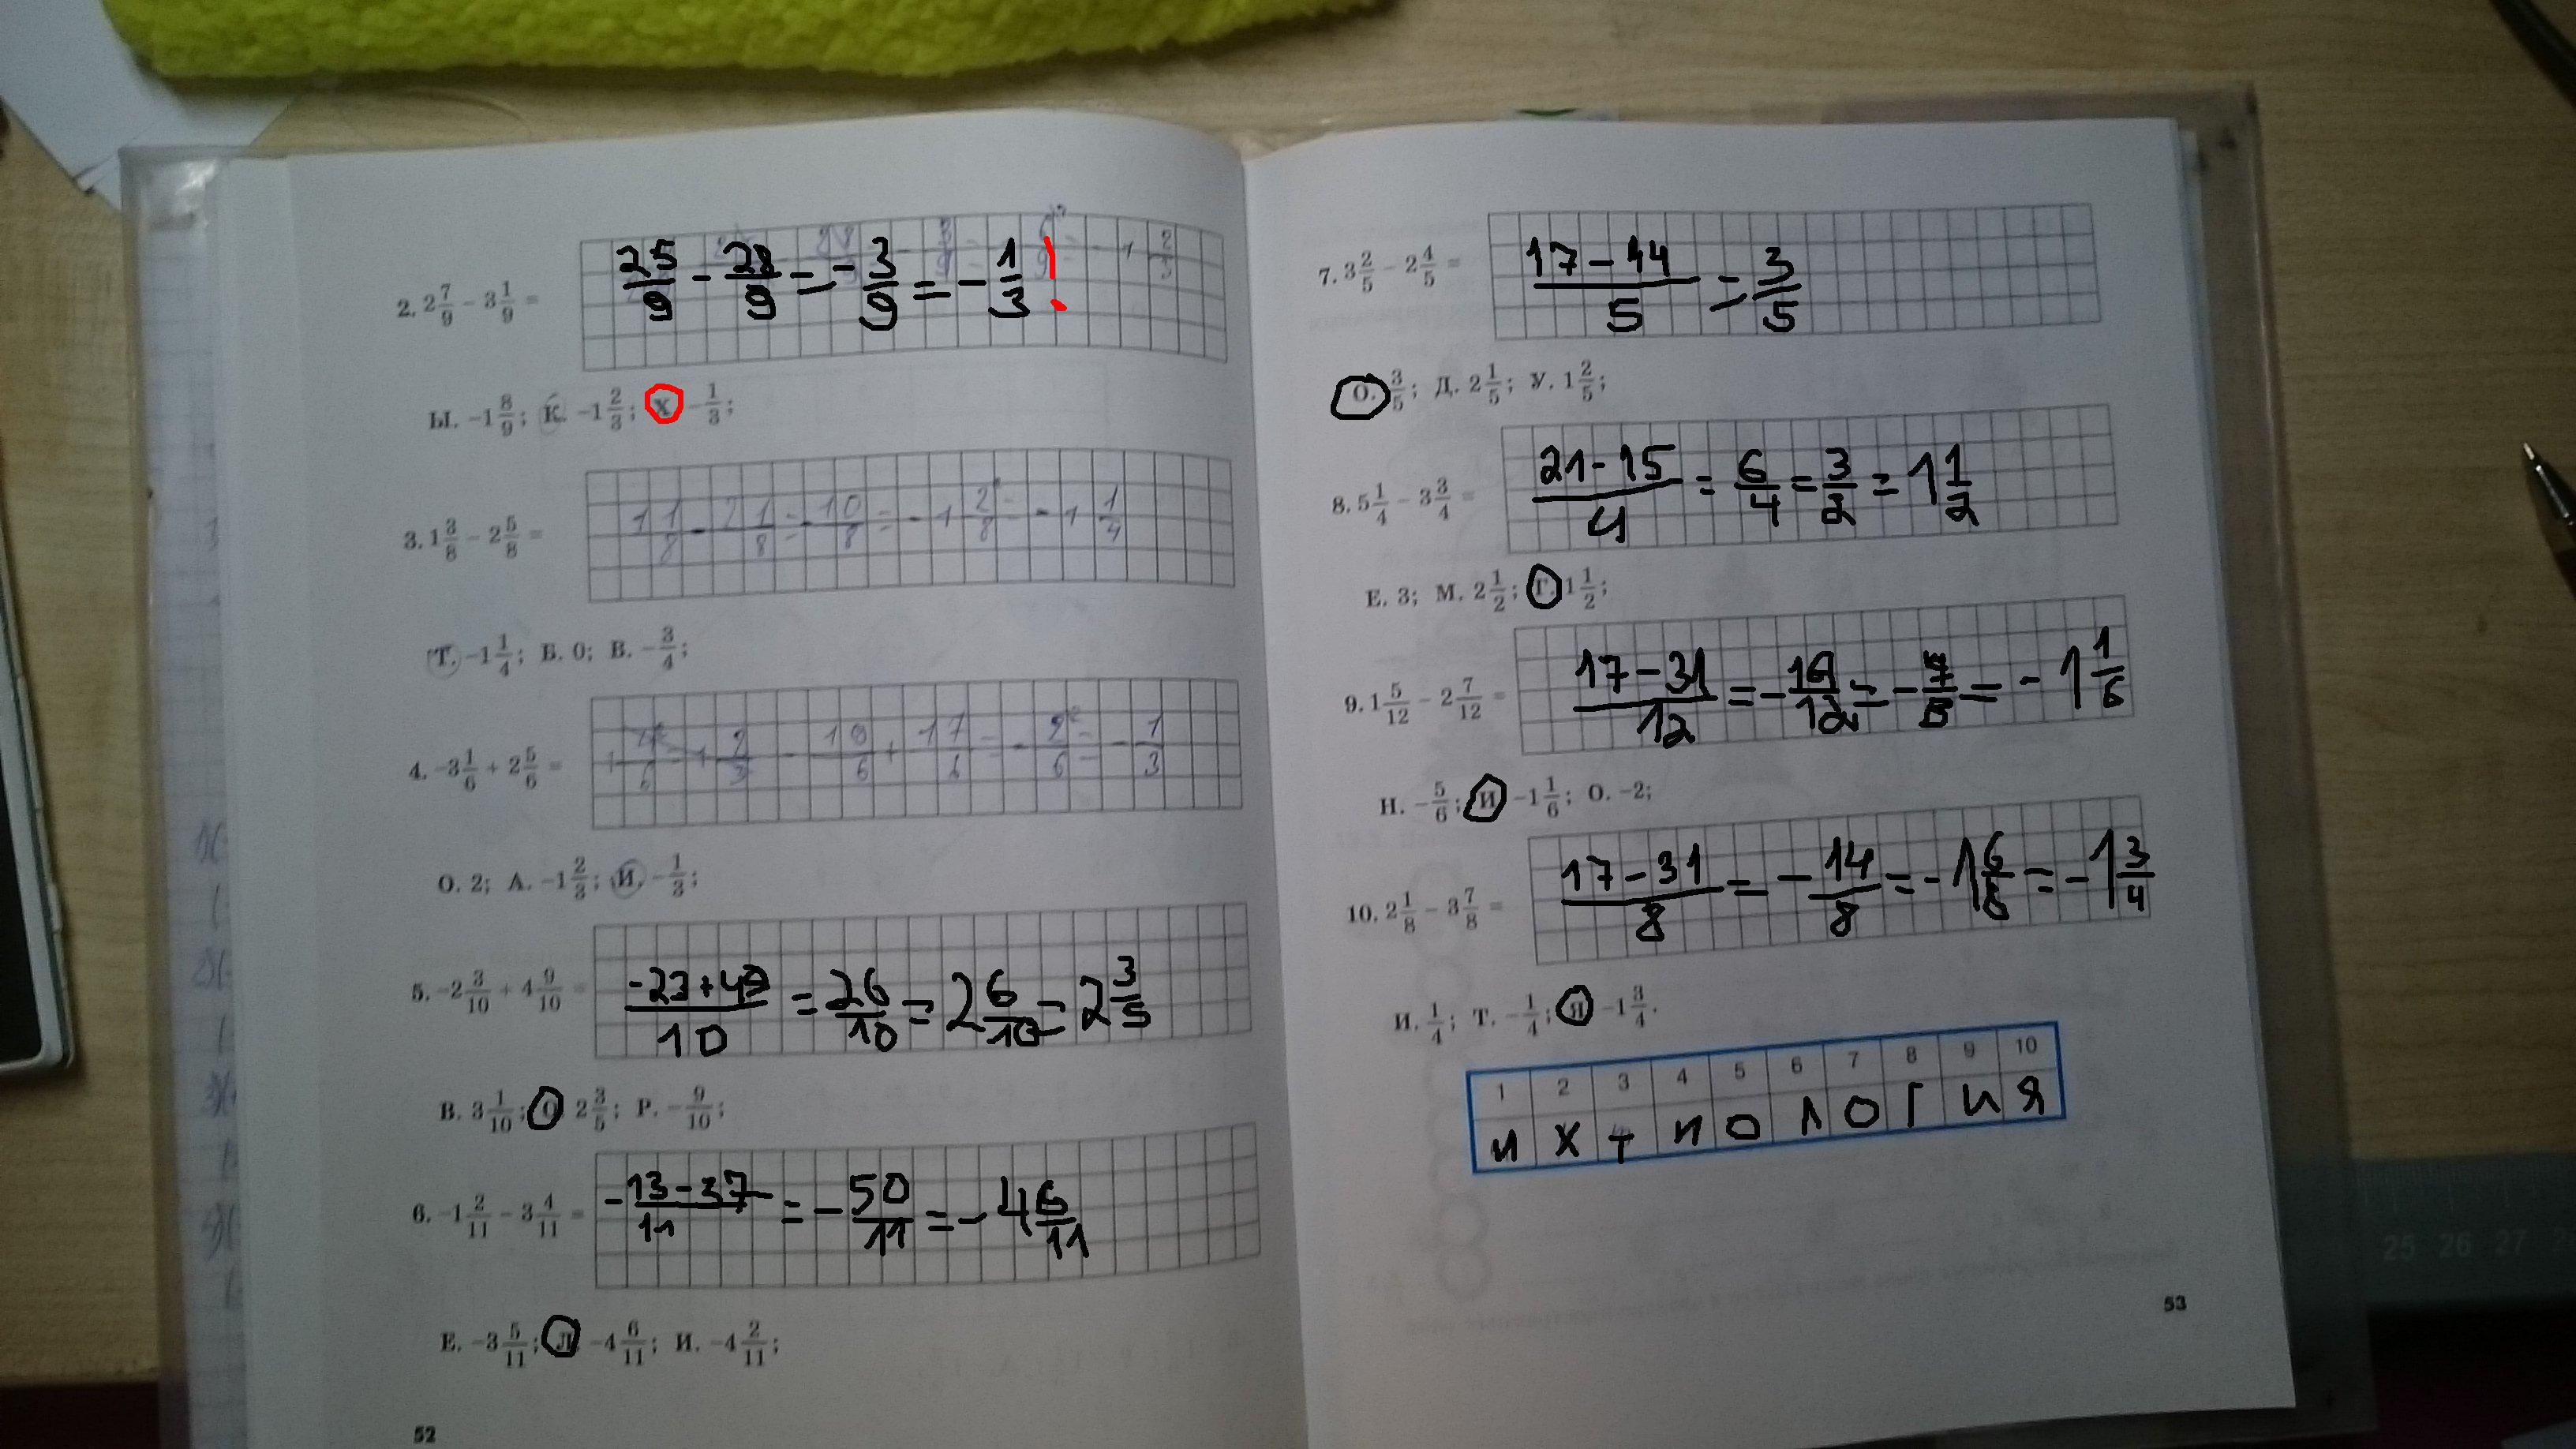 2. 2 7/9 − 3 1/9 = 25/9 − 28/9 = −3/9 = −1/3!
Ы. −1 8/9; К. −1 2/3; Х −1/3;
3. 1 3/8 − 2 5/8 = 11/8 − 21/8 = −10/8 = −1 2/8 = −1 1/4
Т. −1 1/4; Б. 0; В. −3/4;
4. −3 1/6 + 2 5/6 = −19/6 + 17/6 = −2/6 = −1/3
О. 2; А. −1 2/3; И. −1/3;
5. −2 3/10 + 4 9/10 = (−23+49)/10 = 26/10 = 2 6/10 = 2 3/5
В. 3 1/10; О 2 3/5; Р. −9/10;
6. −1 2/11 − 3 4/11 = (−13−37)/11 = −50/11 = −4 6/11
Е. −3 5/11; Л −4 6/11; И. −4 2/11;
52
7. 3 2/5 − 2 4/5 = (17−14)/5 = 3/5
О. 3/5; Д. 2 1/5; У. 1 2/5;
8. 5 1/4 − 3 3/4 = (21−15)/4 = 6/4 = 3/2 = 1 1/2
Е. 3; М. 2 1/2; Г. 1 1/2;
9. 1 5/12 − 2 7/12 = (17−31)/12 = −14/12 = −7/6 = −1 1/6
Н. −5/6; И −1 1/6; О. −2;
10. 2 1/8 − 3 7/8 = (17−31)/8 = −14/8 = −1 6/8 = −1 3/4
И. 1/4; Т. −1/4; Я −1 3/4.
1 2 3 4 5 6 7 8 9 10
и х т и о л о г и я
53
25 26 27